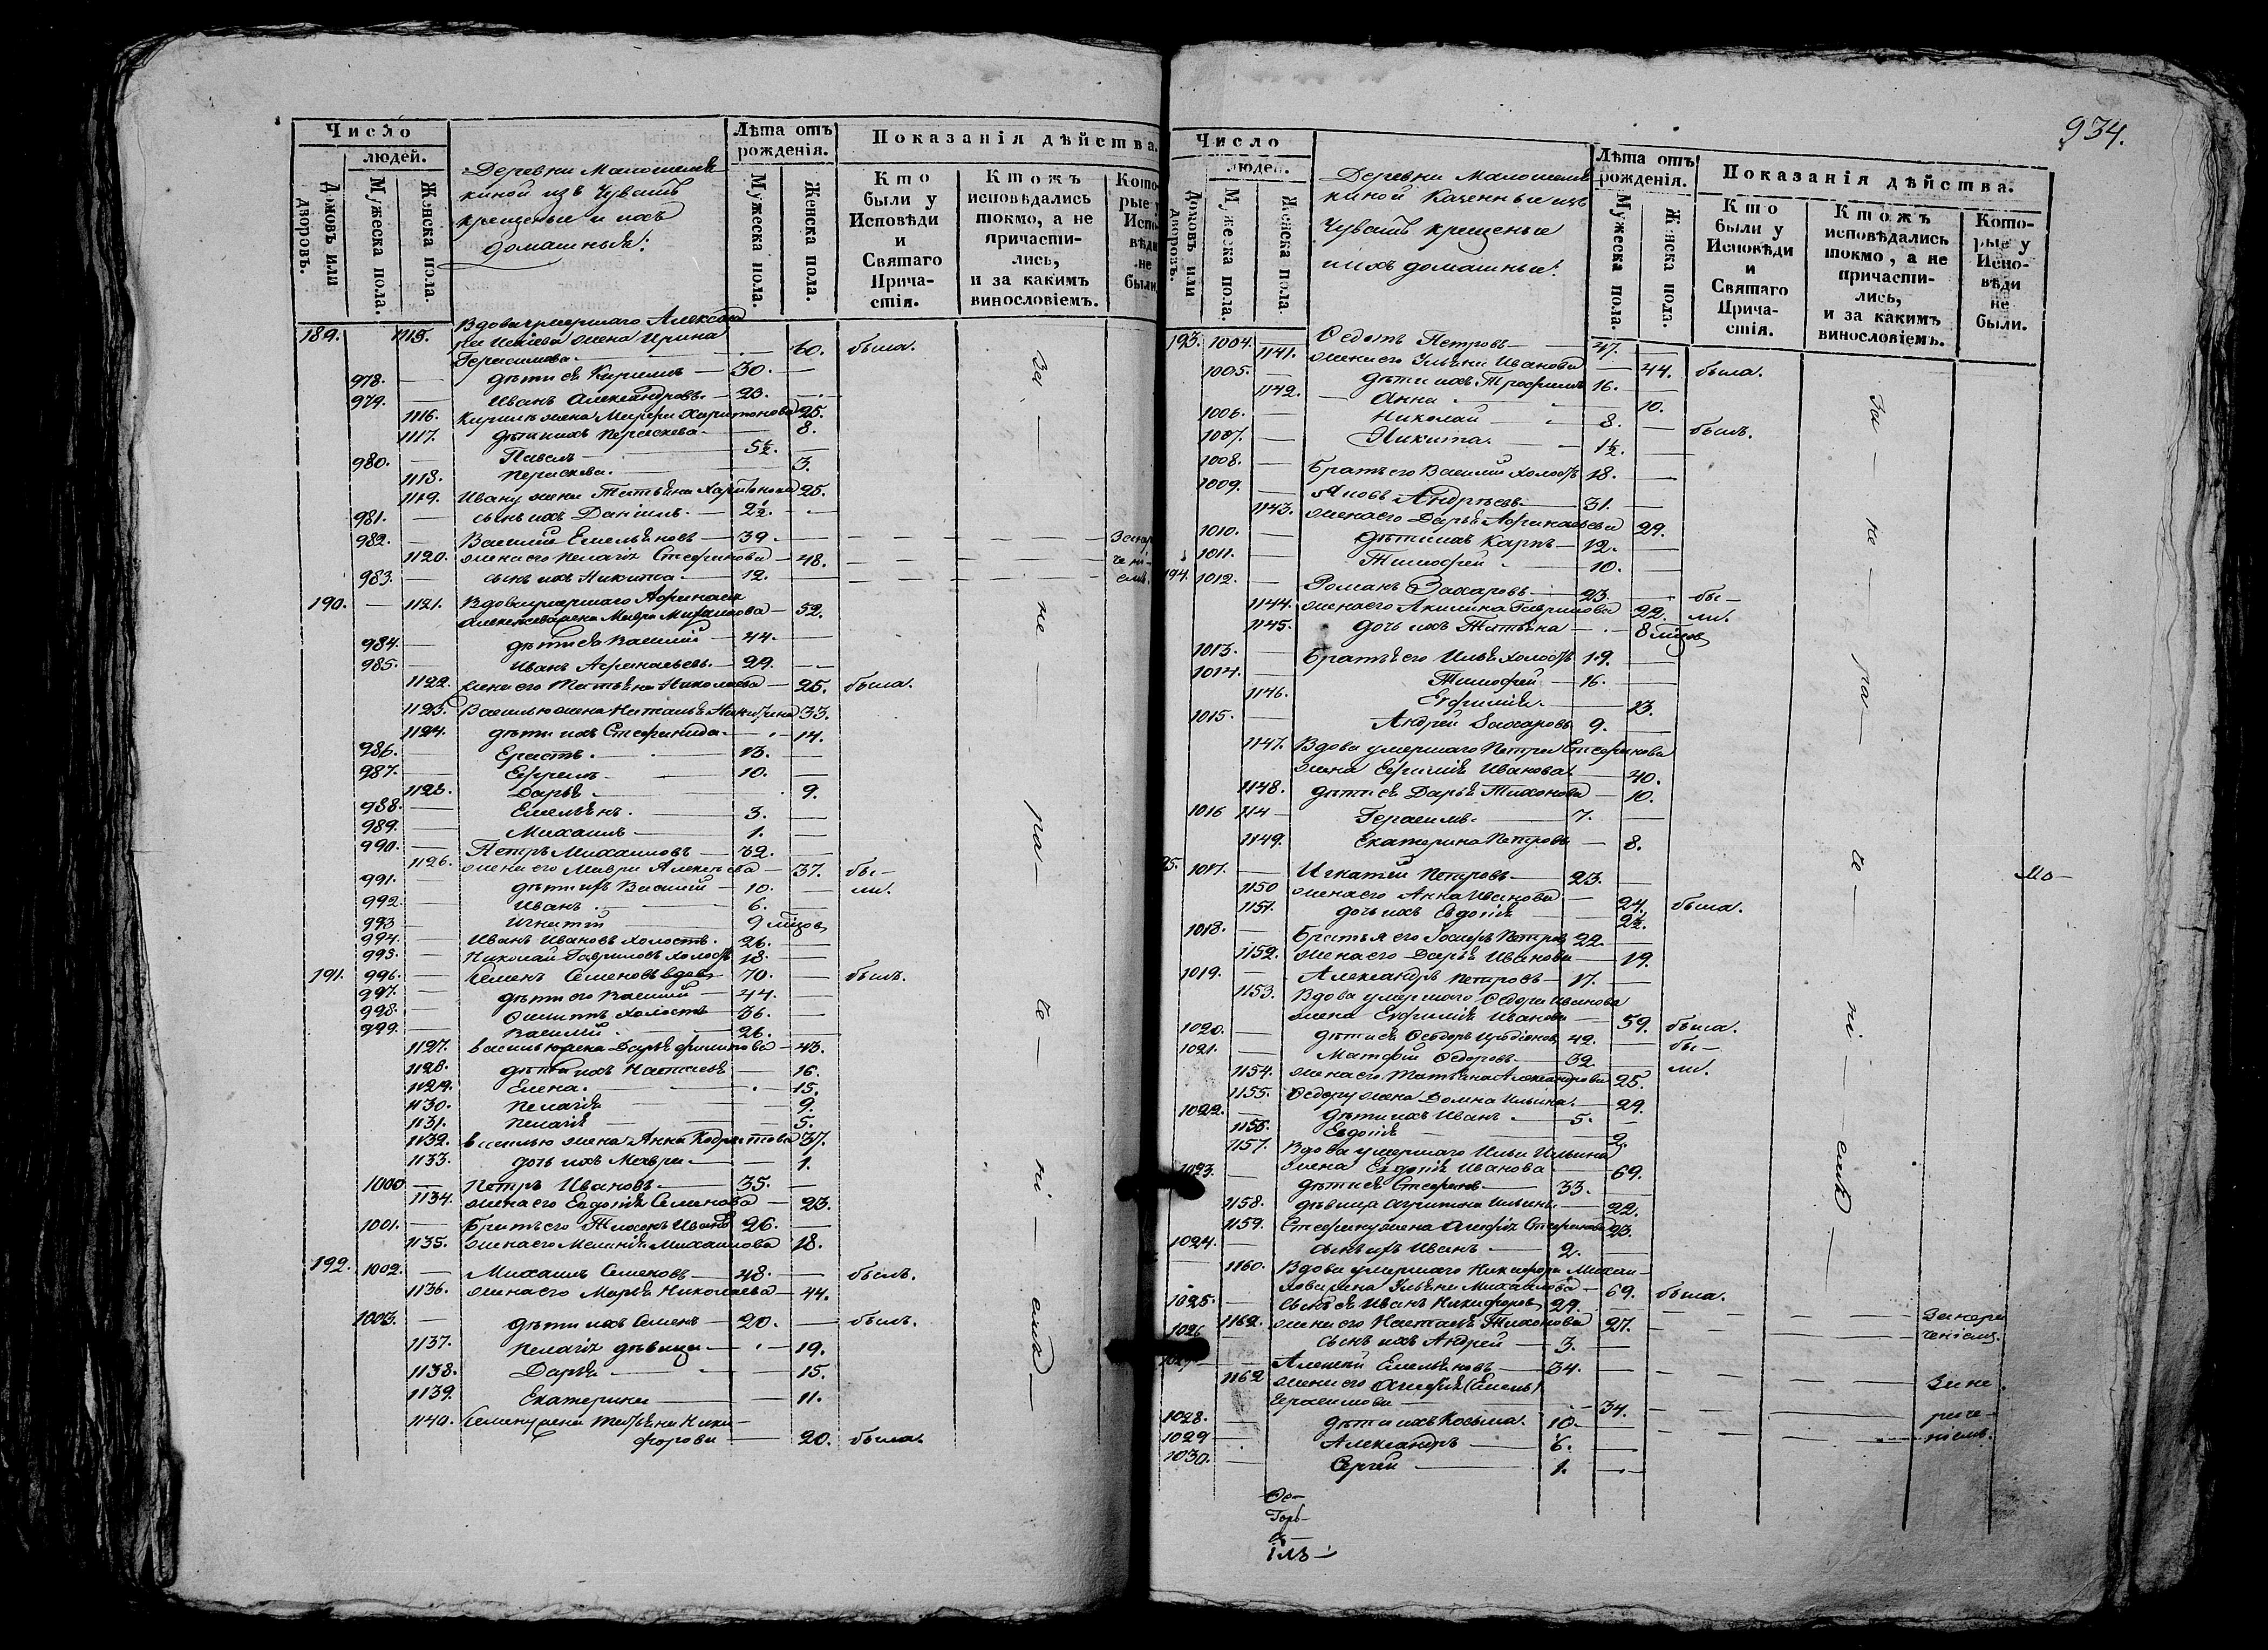 934.
Число
людей.
Домовъ или дворовъ.
Мужеска пола.
Женска пола.
Деревни Малошемя
киной изъ Чувашъ
крещеные и ихъ
домашныя:
Лѣта отъ рожденія.
Мужеска пола.
Женска пола.
Показанія дѣйства.
Кто были у Исповѣди и Святаго Прича-стія.
Ктожъ исповѣдались токмо, а не причасти-лись, и за какимъ винословіемъ.
Кото-рые у Испо-вѣди не были.
189. 1115. Вдова умершаго Алексан
жена Ирина
Герасимова — 60. была.
978. — дѣти ея Кирилъ — 30. —
979. — Иванъ Александровъ — 23. —
1116. Кирилъ жена Марфа Харитонова 25.
1117. дѣти ихъ Параскева — 8.
980. — Павелъ — 5½. —
1118. Параскева — 3.
1119. Ивану жена Татьяна Харитонова 25.
981. — сынъ ихъ Даніилъ — 2½. —
982. — Василій Емельяновъ — 39. — За нера
1120. жена его Пелагія Стефанова — 48. — чені-
983. — сынъ ихъ Никита — 12. — емъ.
190. — 1121. Вдова умершаго Афанасія
Алексѣева жена Мавра Михайлова — 52.
984. — дѣти ея Василій — 44. —
985. — Иванъ Афанасьевъ — 29. —
1122. жена его Татьяна Николаева — 25. была.
1123. Василью жена Наталья Никитина 33.
1124. дѣти ихъ Стефанида — 14.
986. — Ерастъ — 13. —
987. — Ефремъ — 10. —
1125. Дарья — 9.
988. — Емельянъ — 3. —
989. — Михаилъ — 1. —
990. — Петръ Михаиловъ — 32. —
1126. жена его Мавра Алексѣева — 37. бы-
991. — дѣти ихъ Василій — 10. — ли.
992. — Иванъ — 6. —
993 — Игнатій — 9 мѣсяцов
994. — Иванъ Ивановъ холостъ — 26. —
995. — Николай Гавриловъ холостъ 18. —
191. 996. — Семенъ Семеновъ вдовъ 70. — былъ.
997. — дѣти его Василій — 44. —
998. — Филиппъ холостъ — 36. —
999. — Василій — 26. —
1127. Василью жена Дарья Филипова — 43.
1128. дѣти ихъ Наталья — 16.
1129. Елена — 15.
1130. Пелагія — 9.
1131. Пелагія — 5.
1132. Василью жена Анна Кодратова 37.
1133. дочь ихъ Мавра — 1.
1000 — Петръ Ивановъ — 35. —
1134. жена его Евдокія Семенова — 23.
1001. — Братъ его Тихонъ Ивановъ 26. —
1135. жена его Меланія Михаилова 18.
192. 1002. — Михаилъ Семеновъ — 48. — былъ.
1136. жена его Марья Николаева — 44.
1003. — дѣти ихъ Семенъ — 20. — былъ.
1137. Пелагія дѣвица — 19.
1138. Дарья — 15.
1139. Екатерина — 11.
1140. Семену жена Татьяна Ники-
форова — 20. была.
За — не — ра — че — ні — емъ —
Число
людей.
Домовъ или дворовъ.
Мужеска пола.
Женска пола.
Деревни Малошемя
киной Казенные изъ
Чувашъ крещеные
и ихъ домашные:
Лѣта отъ рожденія.
Мужеска пола.
Женска пола.
Показанія дѣйства.
Кто были у Исповѣди и Святаго Прича-стія.
Ктожъ исповѣдались токмо, а не причасти-лись, и за какимъ винословіемъ.
Кото-рые у Испо-вѣди не были.
193. 1004. Ѳедотъ Петровъ — 47. —
1141. жена его Ульяна Иванова — 44. была.
1005. — дѣти ихъ Трофимъ 16. —
1142. Анна — 10.
1006. — Николай — 8. — былъ.
1007. — Никита — 1½. —
1008. — Братъ его Василій холостъ 18. —
1009. — Яковъ Андрѣевъ — 31. —
1143. жена его Дарья Афанасьева 29.
1010. — дѣти ихъ Карпъ — 12. —
1011. — Тимофей — 10. —
194. 1012. — Романъ Захаровъ — 23. — бы-
1144. жена его Акилина Гаврилова 22. ли.
1145. дочь ихъ Татьяна — 8 мѣсяцов
1013. — Братья его Илья холостъ 19. —
1014. — Тимофей — 16. —
1146. Евфимія — 13.
1015. — Андрей Захаровъ 9. —
1147. Вдова умершаго Петра Стефанова
жена Евфимія Иванова — 40.
1148. дѣти ея Дарья Тихонова — 10.
1016 114 — Герасимъ — 7. —
1149. Екатерина Петрова — 8.
95. 1017. — Игнатій Петровъ — 23. —
1150 жена его Анна Иванова — 24. была.
1151. дочь ихъ Евдокія — 2½.
1018. — Братья его Іосифъ Петровъ 22. —
1152. жена его Дарья Иванова — 19.
1019. — Александръ Петровъ — 17. —
1153. Вдова умершаго Ѳедора Иванова
жена Евфимія Иванова — 59. была.
1020. — дѣти ея Ѳеодоръ 42. — бы-
1021. — Матфій Ѳедоровъ — 32 — ли.
1154. жена его Татьяна Александрова 25.
1155. Ѳедору жена Домна Ильина — 29.
1022. — дѣти ихъ Иванъ — 5. —
1156. Евдокія — 2.
1157. Вдова умершаго Ильи Ильина
жена Евдокія Иванова — 69.
1023. — дѣти ея Стефанъ — 33. —
1158. дѣвица Агрипина Ильина — 22.
1159. Стефану жена Агафія Стефанова 23.
1024. — сынъ ихъ Иванъ — 2. —
1160. Вдова умершаго Никифора Михаи-
лова жена Ульяна Михаилова — 69. была.
1025. — сынъ ея Иванъ Никифоровъ 29. — За нера
1162. жена его Наталья Тихонова 27. — ченіемъ.
1026 сынъ ихъ Андрей — 3. —
1027 — Алексѣй Емельяновъ — 34. —
1162 жена его Агафія (Емель) — За не-
Герасимова — 34. —
1028. — дѣти ихъ Косьма 10 — раче-
1029 — Александръ — 6. — ніемъ.
1030. — Сергей — 1. —
За — не — ра — че — ні — емъ —
Мо-